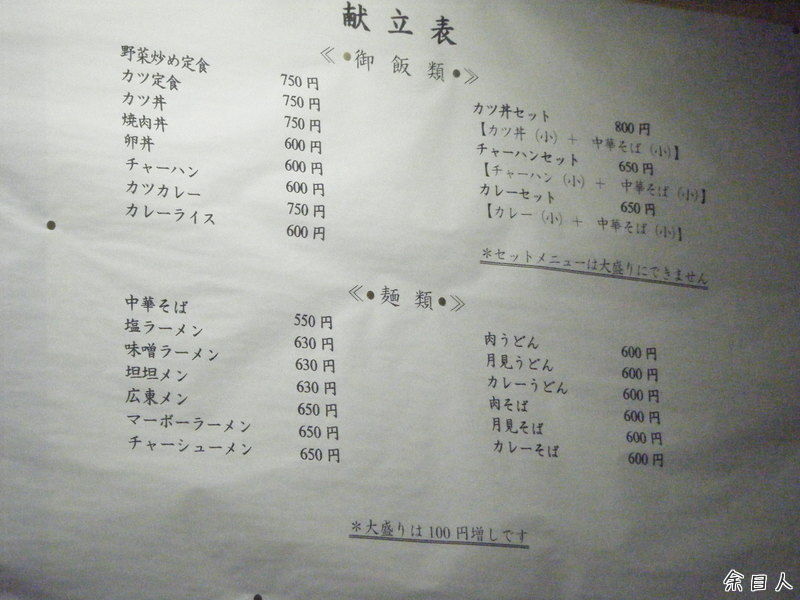 献立表
《●御飯類●》
野菜炒め定食 750円
カツ定食 750円
カツ丼 750円
焼肉丼 600円
卵丼 600円
チャーハン 600円
カツカレー 750円
カレーライス 600円
カツ丼セット 800円
【カツ丼（小）＋ 中華そば（小）】
チャーハンセット 650円
【チャーハン（小）＋ 中華そば（小）】
カレーセット 650円
【カレー（小）＋ 中華そば（小）】
＊セットメニューは大盛りにできません
《●麺類●》
中華そば 550円
塩ラーメン 630円
味噌ラーメン 630円
坦坦メン 630円
広東メン 650円
マーボーラーメン 650円
チャーシューメン 650円
肉うどん 600円
月見うどん 600円
カレーうどん 600円
肉そば 600円
月見そば 600円
カレーそば 600円
＊大盛りは100円増しです
余目人